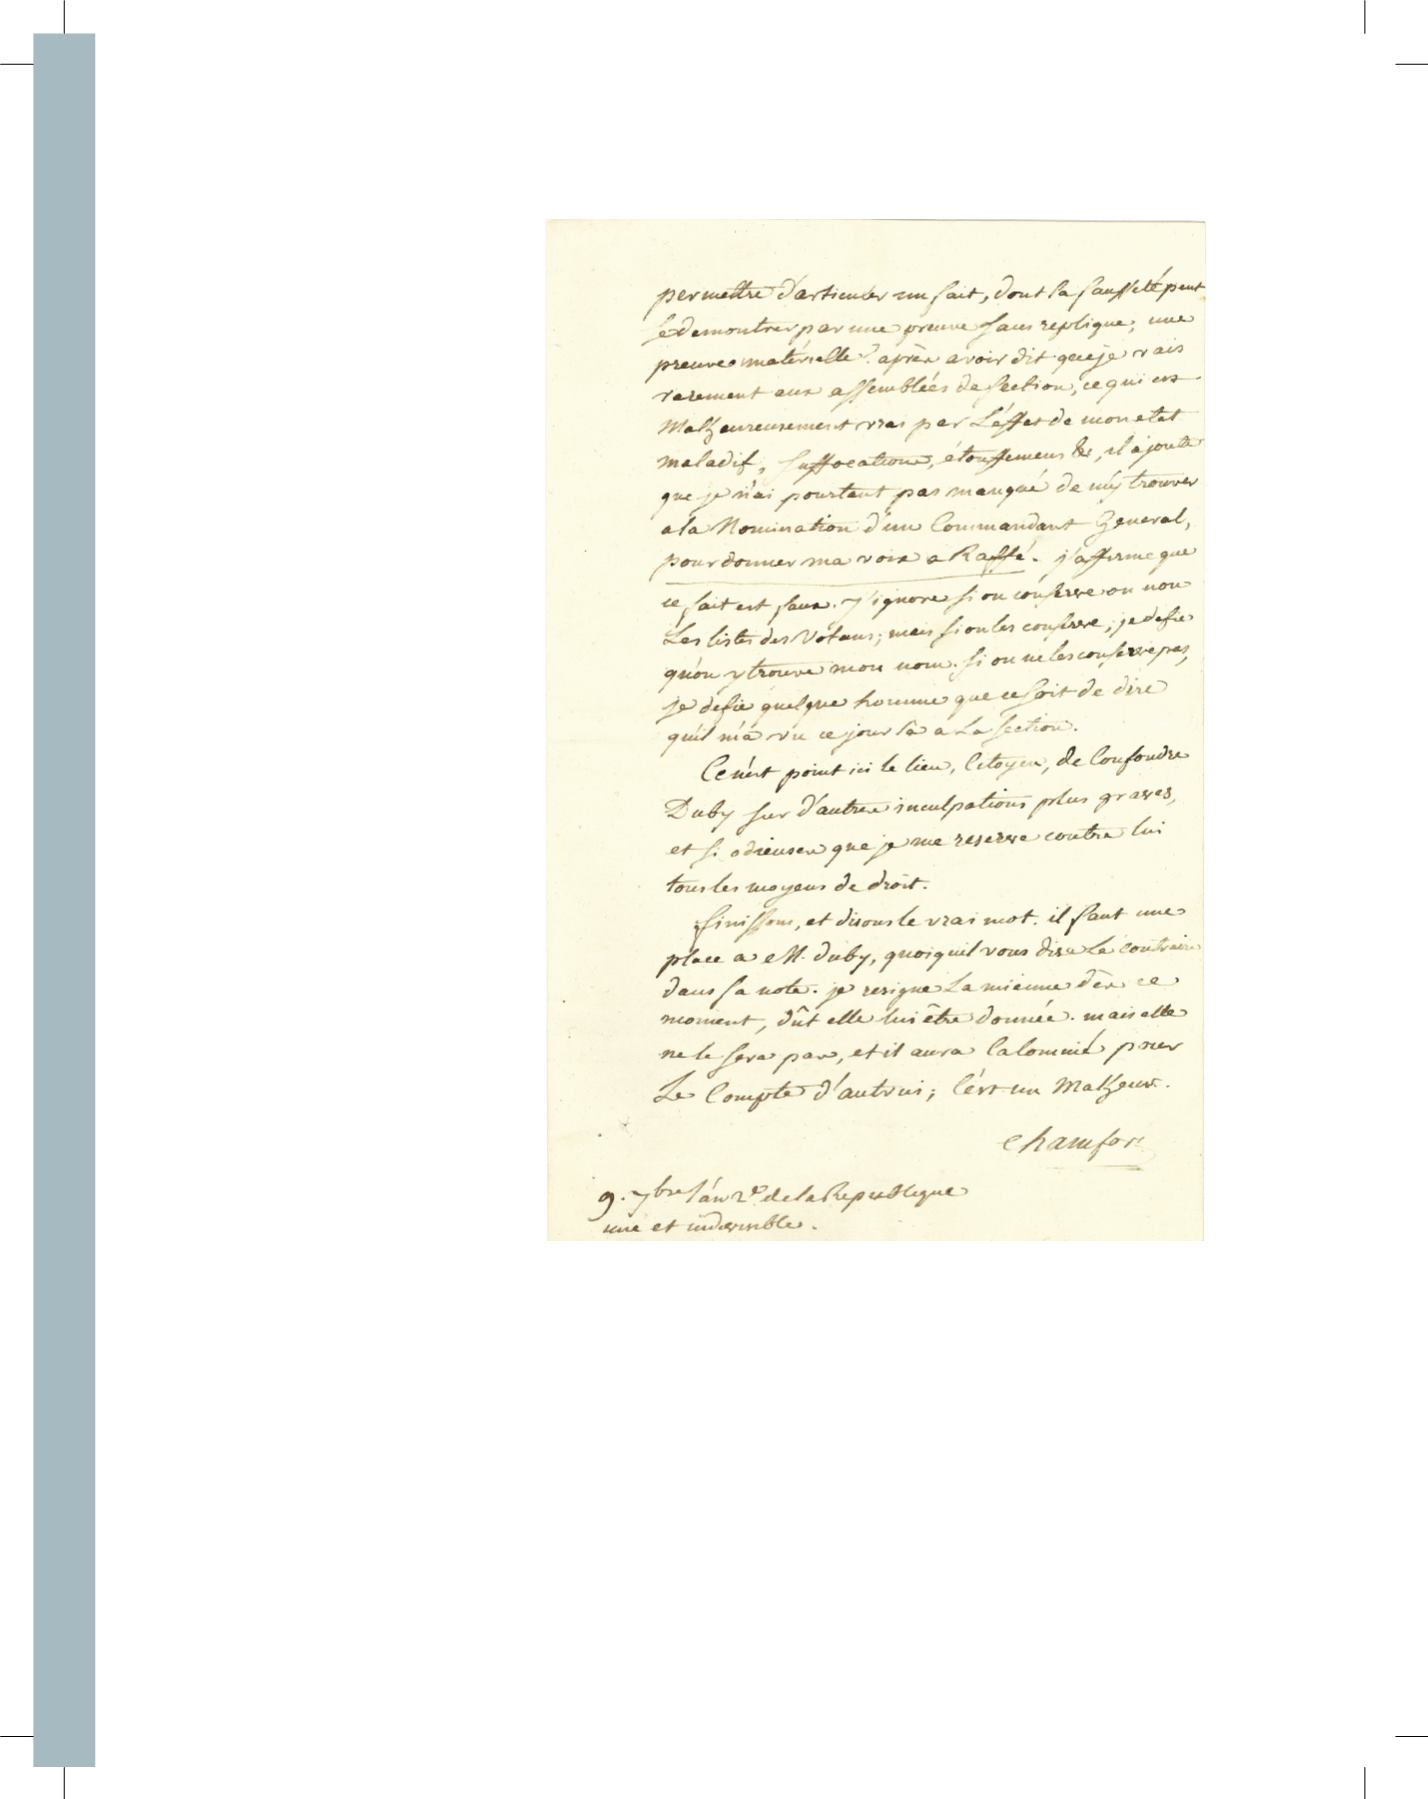 permettre d'articuler un fait, dont la fausseté peut
se demontrer par une preuve sans replique, une
preuve matérielle? après avoir dit que je vais
rarement aux assemblées de section, ce qui est
Malheureusement vrai par L'éffet de mon etat
maladif, suffocations, étouffemens &c, il ajoute
que je n'ai pourtant pas manqué de m'y trouver
a la Nomination d'un Commandant General,
pour donner ma voix a Raffé. j'affirme que
ce fait est faux. j'ignore si on conserve ou non
Les listes des Votans; mais si on les conserve, je defie
qu'on y trouve mon nom. si on ne les conserve pas,
je defie quelque homme que ce soit de dire
qu'il m'a vu ce jour là a La section.
Ce n'est point ici le lieu, Citoyen, de Confondre
Duby sur d'autres inculpations plus graves,
et si odieuses que je me reserve contre lui
tous les moyens de droit.
finissons, et disons le vrai mot. il faut une
place a M. Duby, quoiqu'il vous dise Le contraire
dans sa note. je resigne La mienne dès ce
moment, dût elle lui être donnée. mais elle
ne le sera pas, et il aura Calomnié pour
Le Compte d'autrui; C'est un Malheur.
Chamfort
9. 7bre l'an 2e de la Republique
une et indivisible.